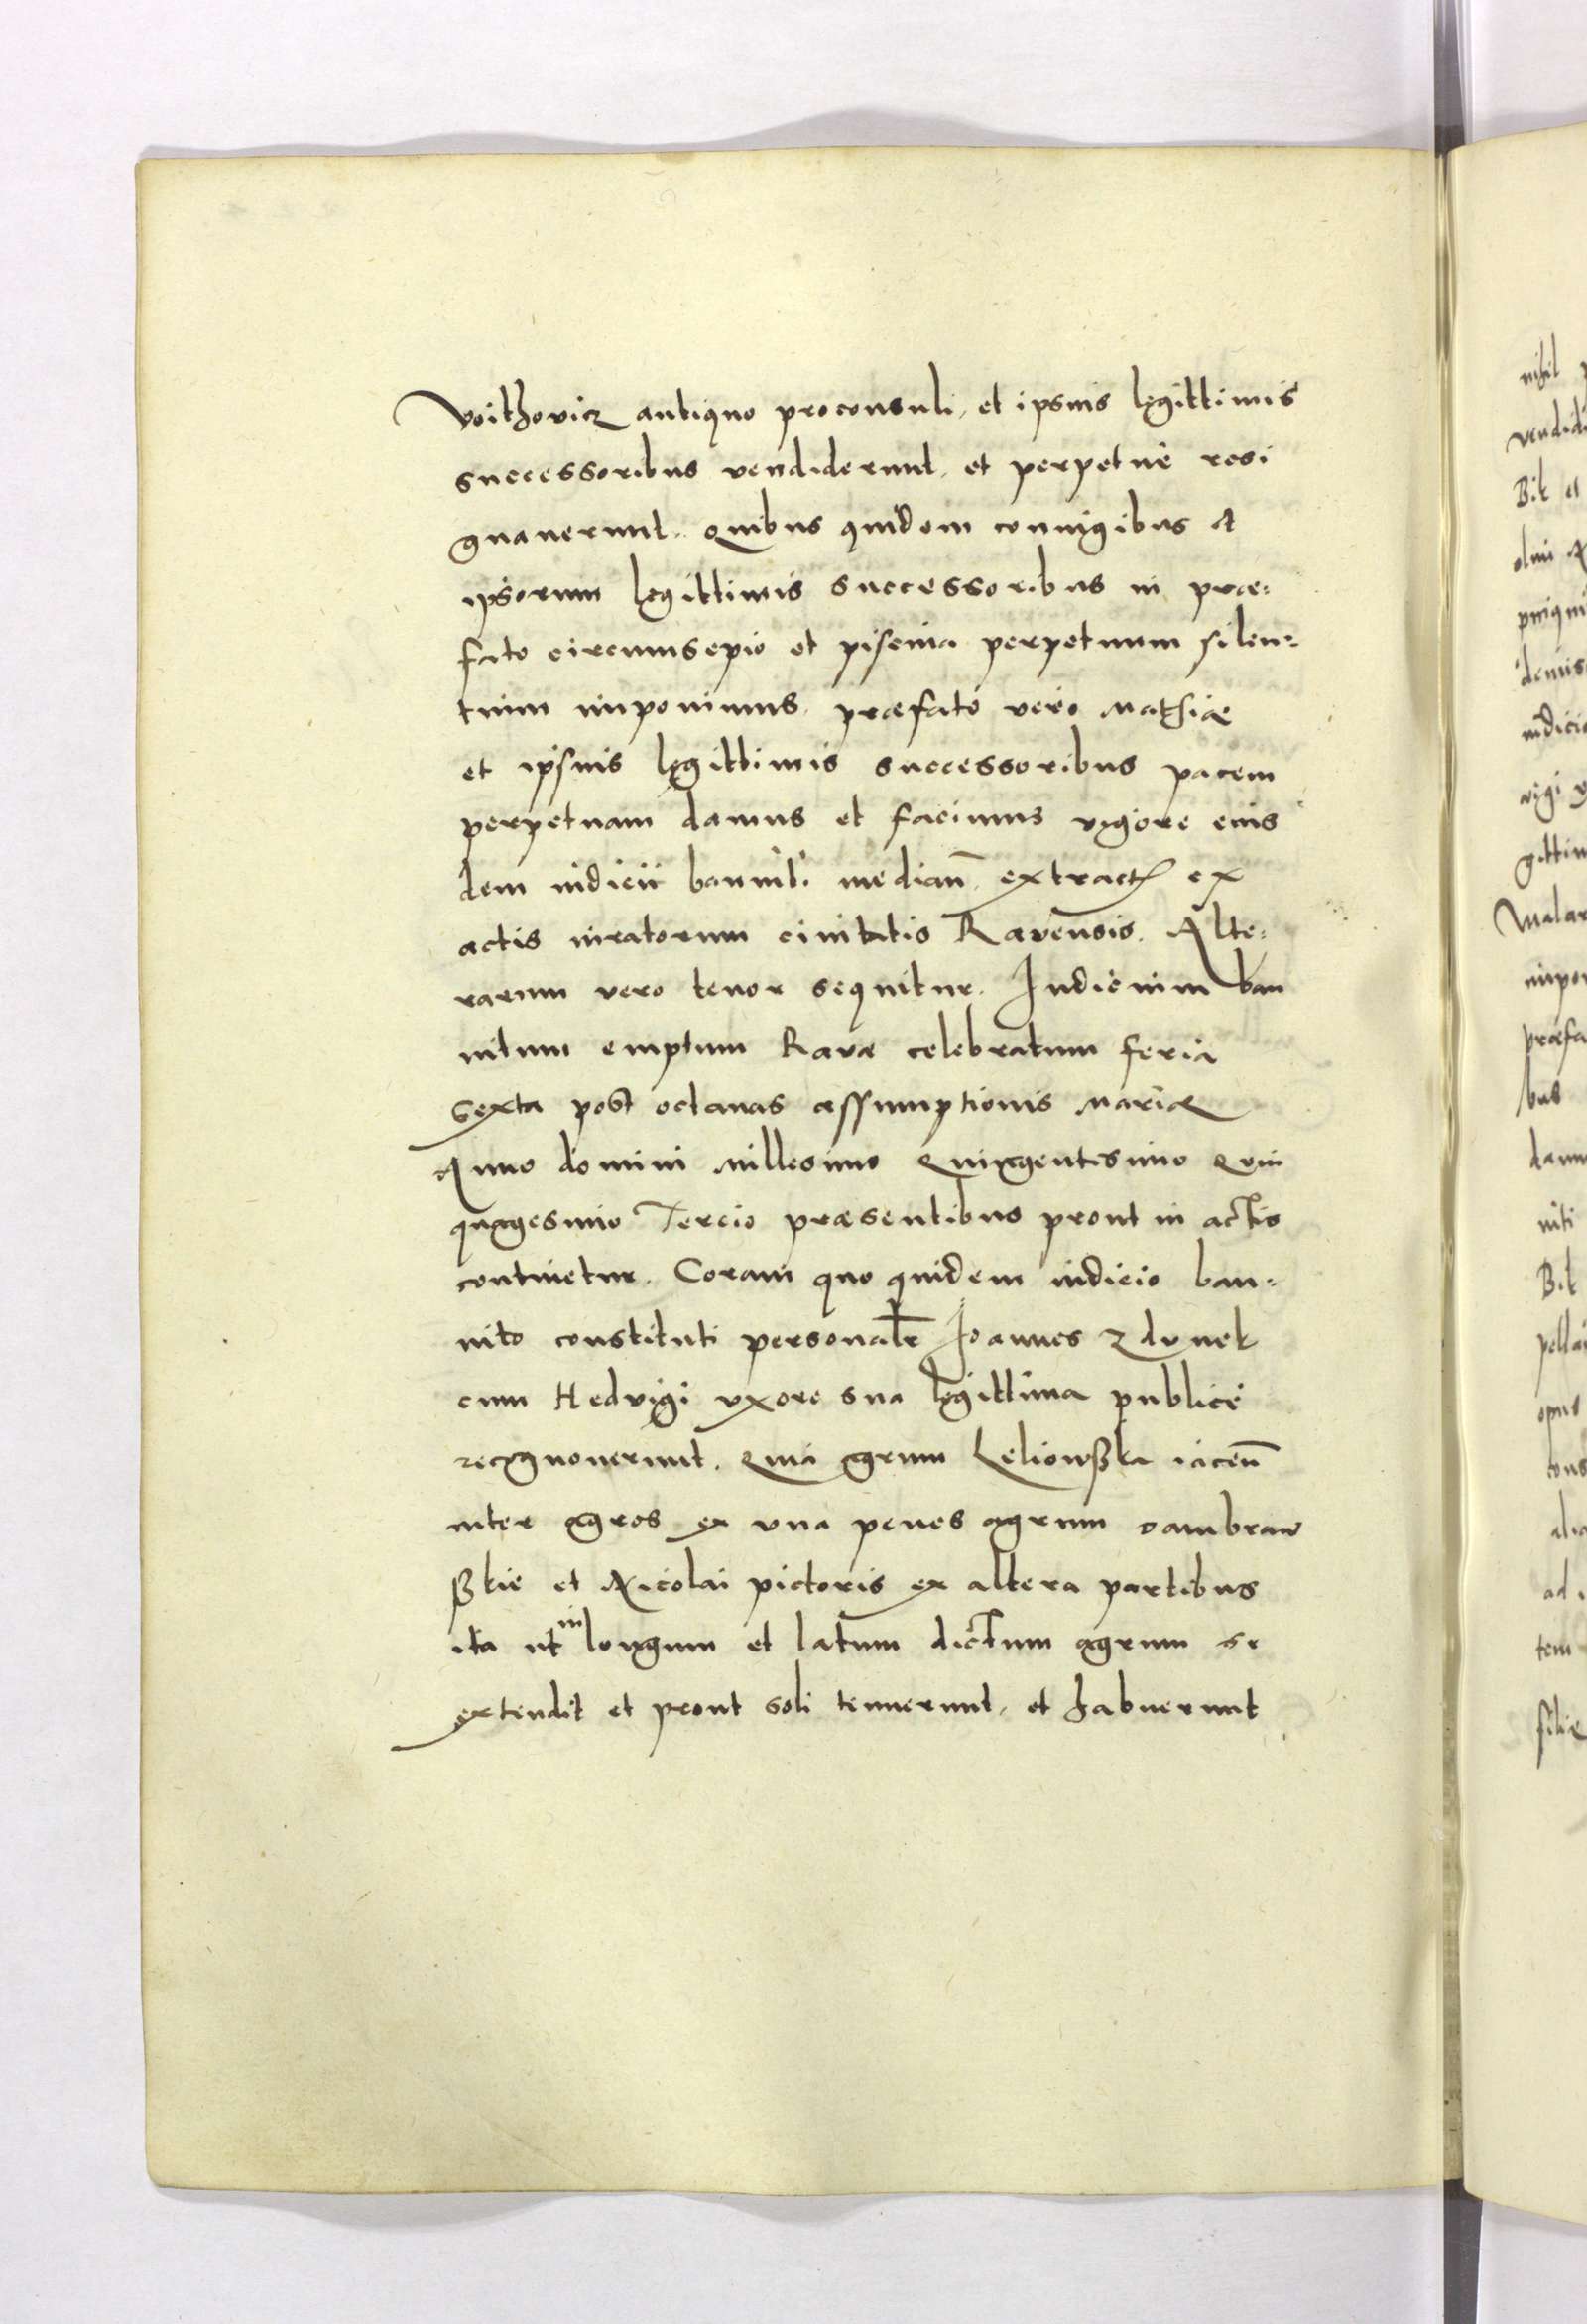 Voithoviz antiquo proconsuli, et ipsius legittimis
successoribus vendiderunt, et perpetuè resi
gnaverunt. Quibus quidem coniugibus et
ipsorum legittimis successoribus in prae=
fato circumsepio et piscina perpetuum silen=
tium imponimus. praefato vero Mathiae
et ipsius legittimis successoribus pacem
perpetuam damus et facimus vigore eius
dem iudicii banniti median̄. extract ex
actis iuratorum civitatis Ravensis. Alte=
rarum vero tenor sequitur. Iudicium ban
nitum emptum Ravae celebratum feria
Sexta post octavas assumptionis Mariae
Anno domini Millesimo Quingentesimo Quin
quagesimo Tercio praesentibus prout in actis
continetur. Coram quo quidem iudicio ban=
nito constituti personalr̄ Joannes Zdunek
cum Hedvigi uxore sua legittima publicè
recognoverunt. Quia agrum Leliowßka iacen̄
inter agros ex una penes agrum Dambraw
ßkie et Nicolai pictoris ex altera partibus
ita ut in longum et latum dictum agrum se
extendit et prout soli tenuerunt, et habuerunt
nihil
vendidi
Bik et
olim
idemis
iudicio
vigi
gittim
Malar
impon
praefa
bus
damu
niti
Bik
pella
opus
cons
alia
ad
tem
filiae